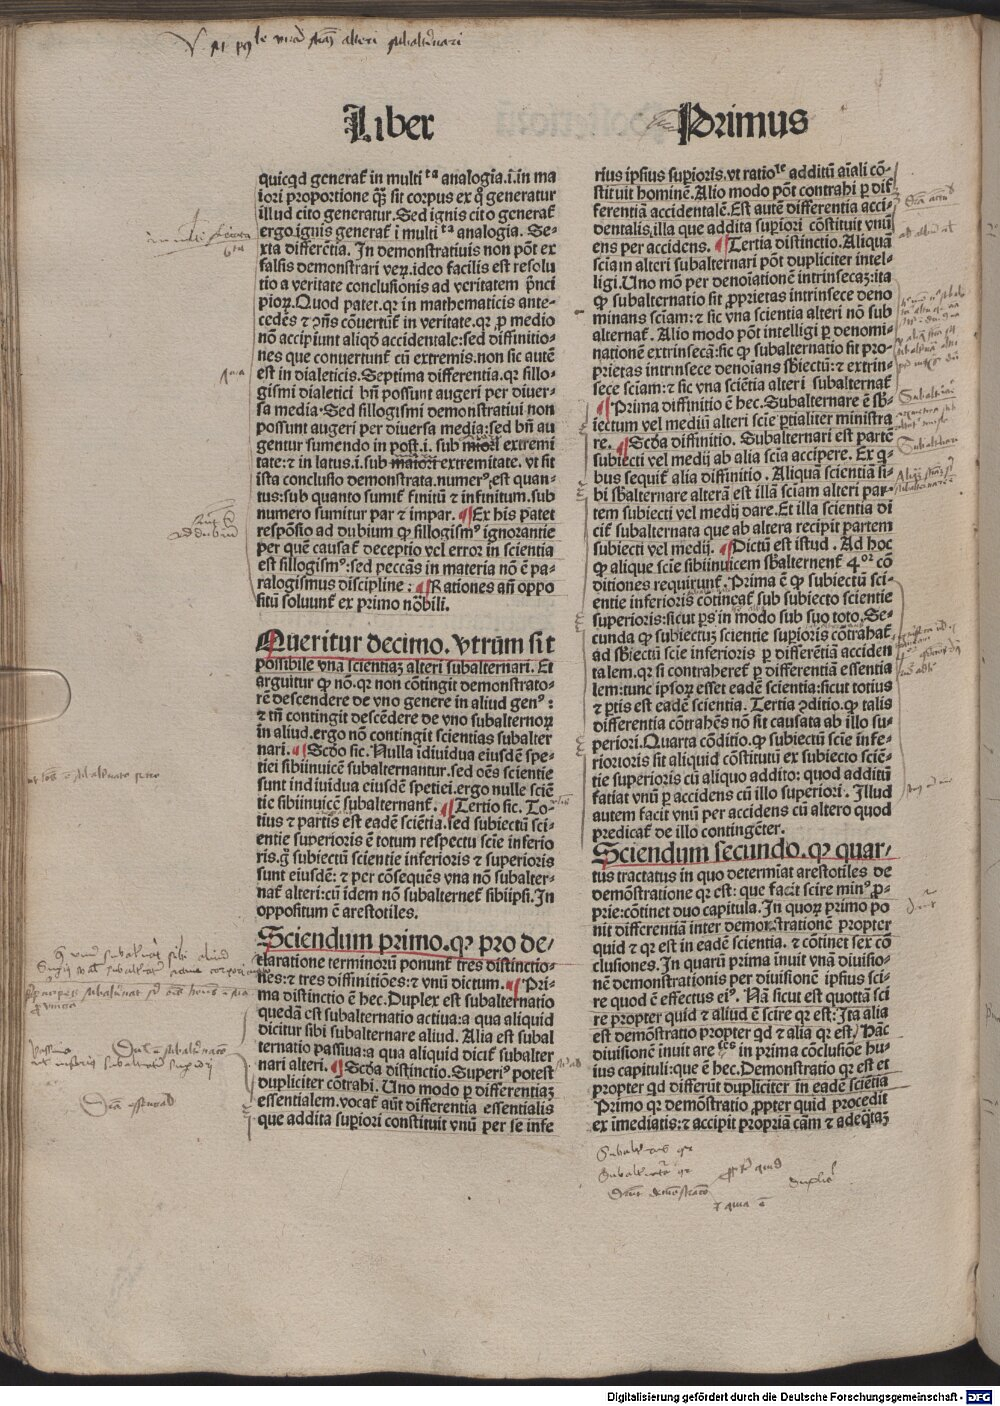 Liber Primus
quicqd generat̄ in multi ta analogia.i.in ma
iori proportione q̃ȝ sit corpus ex q̊ generatur
illud cito generatur.Sed ignis cito generat̄
ergo ignis generat̄ ĩ multi ta analogia. Se-
xta differẽtia. In demonstratiuis non põt ex
falsis demonstrari veꝝ.ideo facilis est resolu
tio a veritate conclusiõnis ad veritatem p̃nci
pioꝝ.Quod patet.qꝛ in mathematicis ante-
cedẽs ⁊ ↄñs cõuertũt̄ in veritate.qꝛ ꝓ medio
nõ accipiunt aliqḋ accidentale:sed diffinitio-
nes que conuertunt̄ cũ extremis.non sic autẽ
est in dialeticis.Septima differentia.qꝛ sillo-
gismi dialetici bñ possunt augeri per diuer-
sa media.Sed sillogismi demonstratiui non
possunt augeri per diuersa media:sed bñ au
gentur sumendo in post.i. sub maiori extremi
tate:⁊ in latus.i.sub maiori extremitate. vt sit
ista conclusio demonstrata.numerꝰ est quan-
tus:sub quanto sumit̄ finitũ ⁊ infinitum.sub
numero sumitur par ⁊ impar. ¶Ex his patet
respõsio ad dubium ꝙ sillogismꝰ ignorantie
per quẽ causat̄ deceptio vel error in scientia
est sillogismꝰ:sed peccãs in materia nõ ẽ pa-
ralogismus discipline: ¶Rationes añ oppo
sitũ soluunt̄ ex primo nobili.
Queritur decimo. vtrũm sit
possibile vnã scientiaȝ alteri subalternari. Et
arguitur ꝙ nõ.qꝛ non cõtingit demonstrato-
rẽ descendere de vno genere in aliud genꝰ:
⁊ tñ contingit descẽdere de vno subalternoꝝ
in aliud.ergo nõ contingit scientias subalter
nari.¶Scḋo sic.Nulla idiuidua eiusdẽ spe-
tiei sibiinuicẽ subalternantur.sed oẽs scientie
sunt indiuidua eiusdẽ spetiei.ergo nulle sciẽ
tie sibiinuicẽ subalternant̄. ¶Tertio sic. To-
tius ⁊ partis est eadẽ sciẽtia.sed subiectũ sci-
entie superioris ẽ totum respectu scĩe inferio
ris.ḡ subiectũ scientie inferioris ⁊ superioris
sunt eiusdẽ: ⁊ per cõsequẽs vna nõ subalter-
nat̄ alteri:cũ idem nõ subalternet̄ sibiipsi.In
oppositum ẽ arestotiles.
Sciendum primo.qꝙ pro de-
claratione terminorũ ponunt̄ tres distinctio-
nes:⁊ tres diffinitiões:⁊ vnũ dictum. ¶Pri-
ma distinctio ẽ hec.Duplex est subalternatio
quedã est subalternatio actiua:a qua aliquid
dicitur sibi subalternare aliud. Alia est subal
ternatio passiua:a qua aliquid dicit̄ subalter
nari alteri. ¶Scḋa distinctio.Superiꝰ potest
dupliciter cõtrahi. Uno modo ꝑ differentiaȝ
essentialem.vocat̄ aũt differentia essentialis
que addita suꝑiori constituit vnũ per se infe
rius ipsius suꝑioris.vt ratiole additũ aĩali cõ-
stituit hominẽ.Alio modo põt contrahi ꝑ dif
ferentiã accidentalẽ.Est autẽ differentia acci-
dentalis,illa que addita suꝑiori cõstituit vnũ
ens per accidens. ¶Tertia distinctio.Aliquã
sciam alteri subalternari põt dupliciter intel-
ligi.Uno mõ per denoĩationẽ intrinsecaȝ:ita
ꝙ subalternatio sit ꝓprietas intrinsece deno
minans sciam:⁊ sic vna scientia alteri nõ sub
alternat̄. Alio modo põt intelligi ꝑ denomi-
nationẽ extrinsecã:sic ꝙ subalternatio sit pro-
prietas intrinsece denoĩans sbĩectũ:⁊ extrin-
sece sciam:⁊ sic vna sciẽtia alteri subalternat̄
¶Prima diffinitio ẽ hec.Subalternare ẽ sb̃-
iectum vel mediũ alteri scĩe ꝑtialiter ministra
re. ¶Scḋa diffinitio. Subalternari est partẽ
subiecti vel medij ab alia scia accipere. Ex q̃-
bus sequit̄ alia diffinitio . Aliquã scientiã si-
bi sb̃alternare alterã est illã sciam alteri par-
tem subiecti vel medij dare.Et illa scientia di
cit̄ subalternata que ab altera recipit partem
subiecti vel medij. ¶Dictũ est istud . Ad hoc
ꝙ alique scie sibiinuicem sb̃alternent̄ 4or cõ
ditiones requirunt̄. Prima ẽ ꝙ subiectũ sci-
entie inferioris cõtineat̄ sub subiecto scientie
superioris:sicut ꝑs in modo sub suo toto. Se-
cunda ꝙ subiectuȝ scientie suꝑioris cõtrahat̄
ad sb̃iectũ scie inferioris ꝑ differẽtiã acciden
talem.qꝛ si contraheret̄ ꝑ differentiã essentia
lem:tunc ipsoꝝ esset eadẽ scientia:sicut totius
⁊ ꝑtis est eadẽ scientia. Tertia ↄditio.ꝙ talis
differentia cõtrahẽs nõ sit causata ab illo su-
periori.Quarta cõditio.ꝙ subiectũ scie infe-
riorioris sit aliquid cõstitutũ ex subiecto sciẽ-
tie superioris cũ aliquo addito: quod additũ
fatiat vnũ ꝑ accidens cũ illo superiori . Illud
autem facit vnũ per accidens cũ altero quod
predicat̄ de illo contingẽter.
Sciendum secundo.ꝙ quar-
tus tractatus in quo determiat arestotiles de
demõstratione qꝛ est: que facit scire minꝰ ꝓ-
prie:cõtinet duo capitula.In quoꝝ primo po
nit differentiã inter demonstrationẽ propter
quid ⁊ qꝛ est in eadẽ scientia. ⁊ cõtinet sex cõ
clusiones. In quarũ prima ĩnuit vnã diuisio-
nẽ demonstrationis per diuisionẽ ipsius sci-
re quod ẽ effectus eiꝰ. Nã sicut est quottã sci
re propter quid ⁊ aliud ẽ scire qꝛ est: Ita alia
est demõstratio propter qd ⁊ alia qꝛ est/ Hãc
diuisionẽ inuit are les in prima cõclusiõe hu-
ius capituli:que ẽ hec.Demonstratio qꝛ est et
propter qd differũt dupliciter in eadẽ sciẽtia
Primo qꝛ demõstratio ꝓpter quid procedit
ex ĩmediatis:⁊ accipit propriã cãm ⁊ adeq̃taȝ
Digitalisierung gefördert durch die Deutsche Forschungsgemeinschaft - DFG